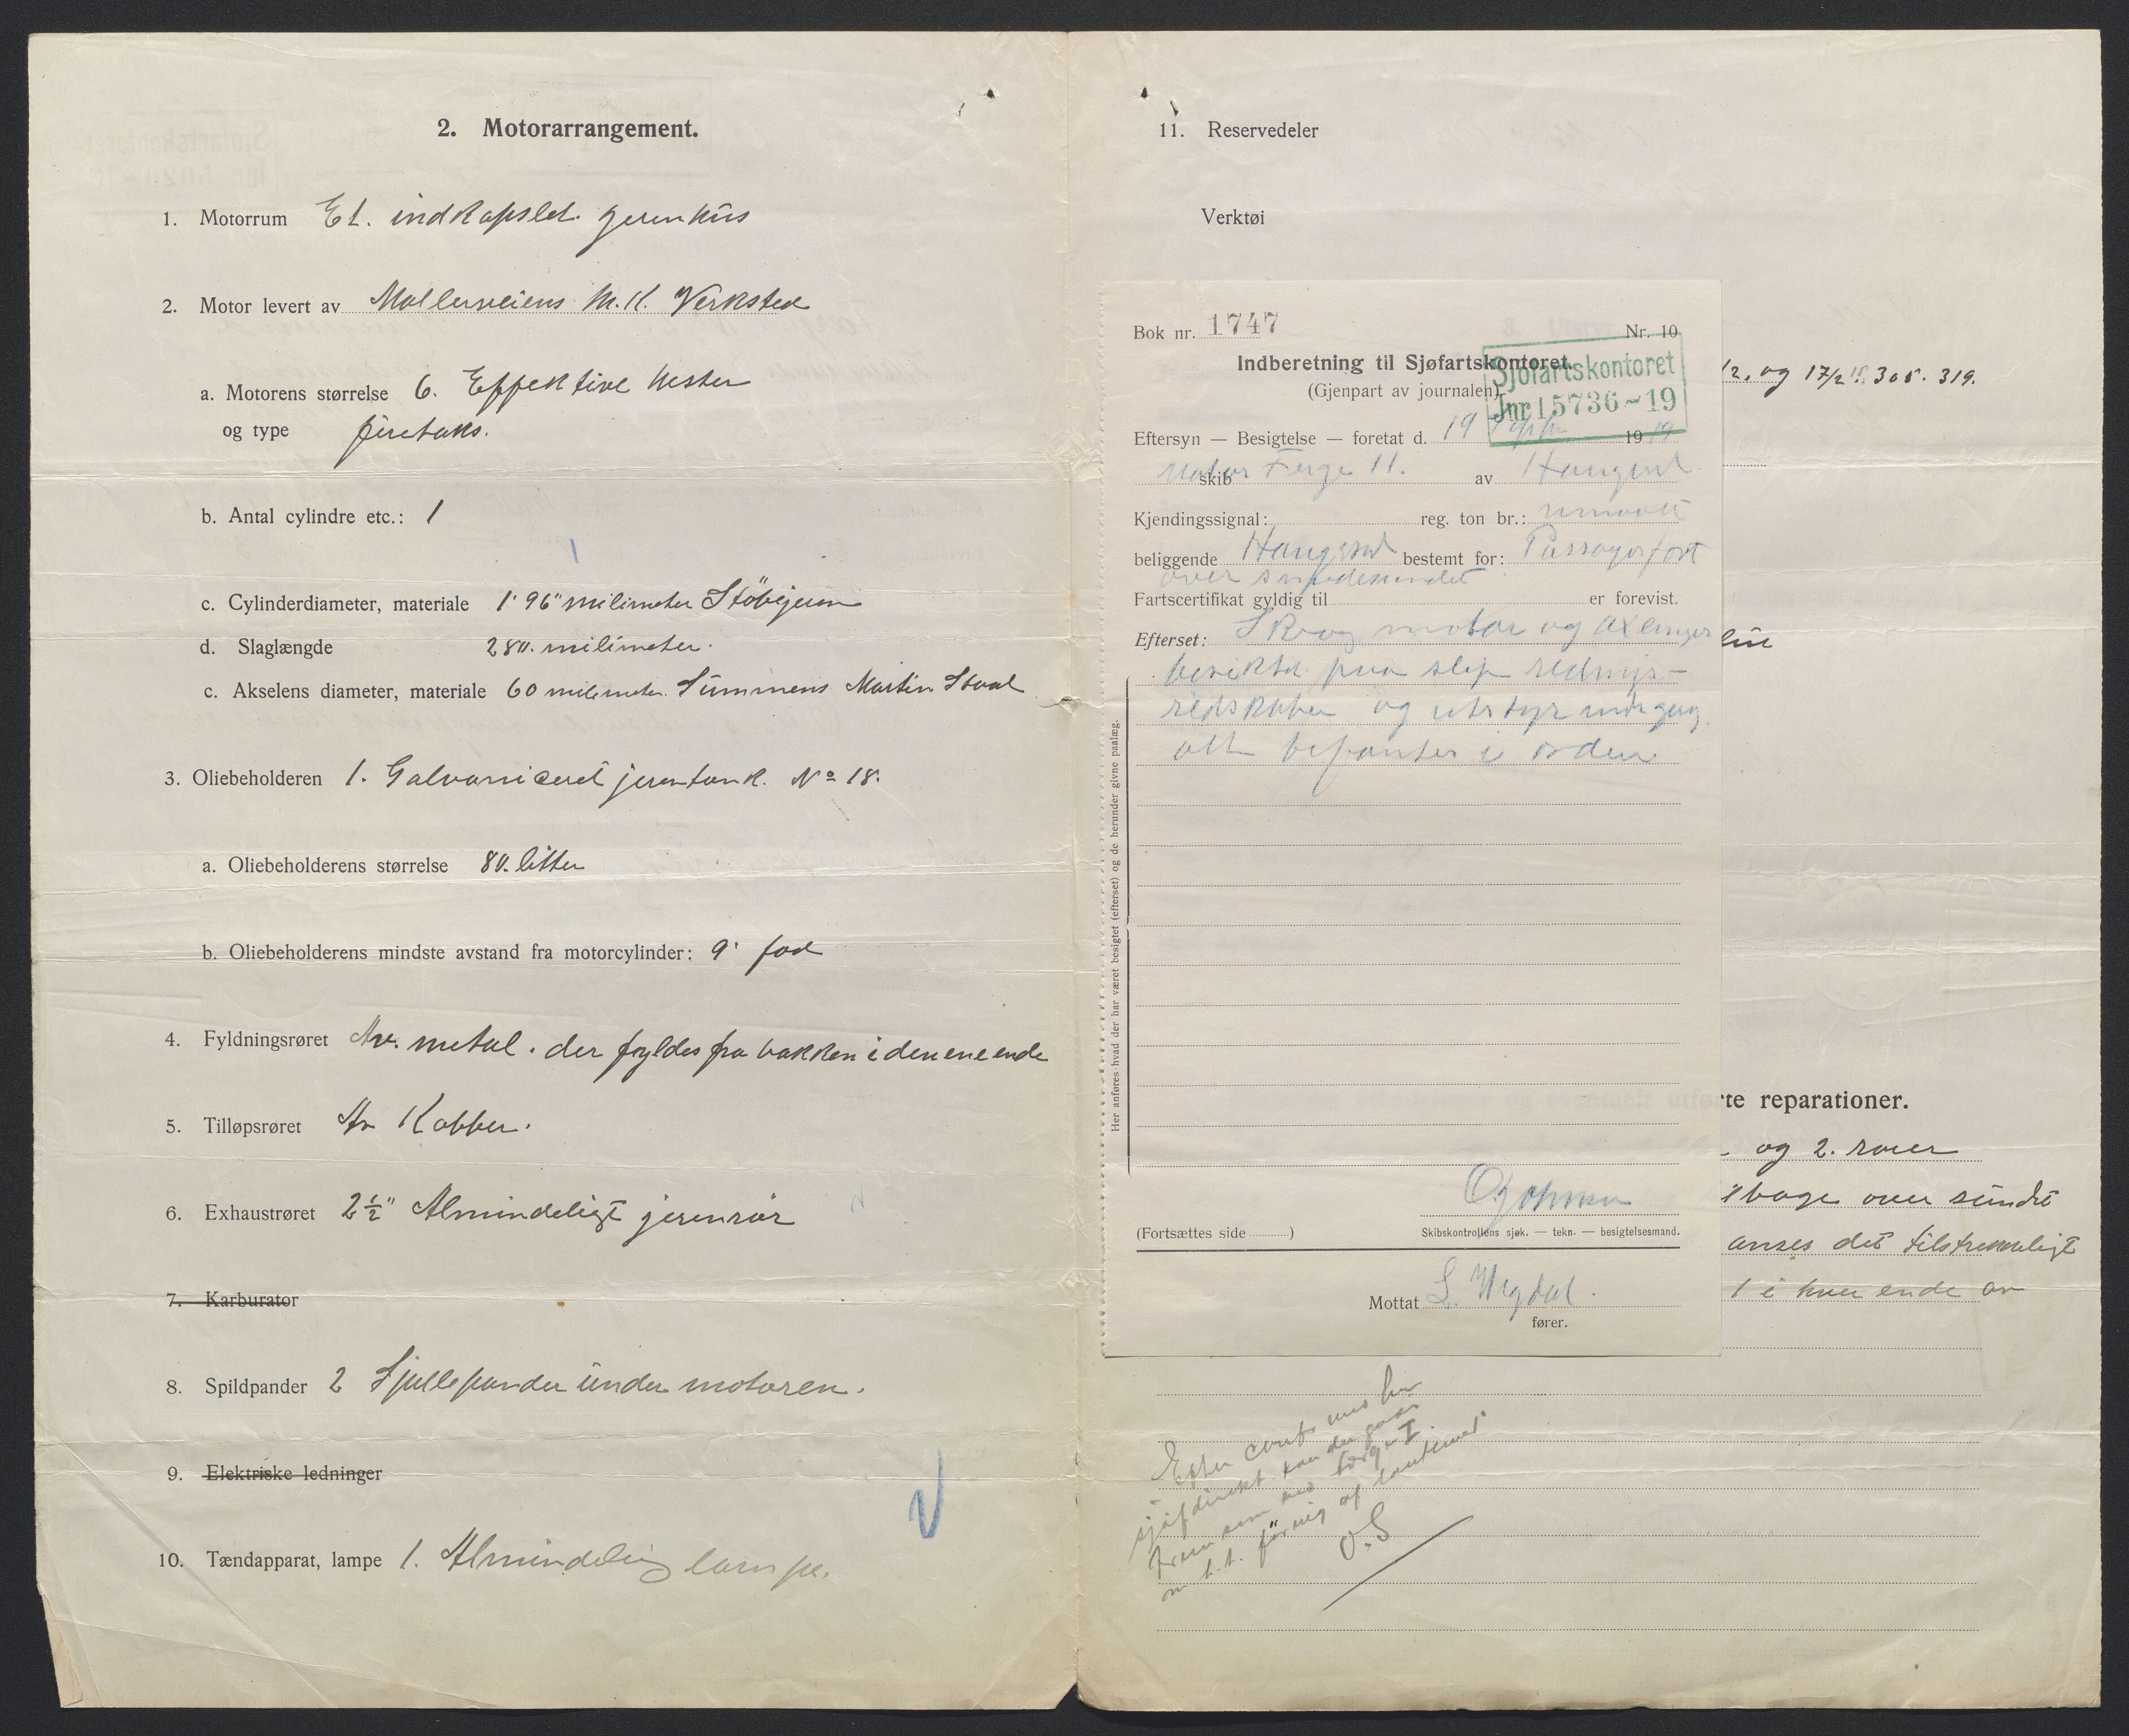 2. Motorarrangement.
1. Motorrum Et. indkapslet. jernhus
2. Motor levert av Møllerveiens M.K. Verksted
a. Motorens størrelse 6. Effektive hester
og type firetakts.
b. Antal cylindre etc.: 1
c. Cylinderdiameter, materiale 196 milimeter Støbejern
d. Slaglængde 280. milimeter.
c. Akselens diameter, materiale 60 milimeter. Simmens Martin Staal
3. Oliebeholderen 1. Galvaniceret jerntank. No 18.
a. Oliebeholderens størrelse 80. litter
b. Oliebeholderens mindste avstand fra motorcylinder: 9' fod
4. Fyldningsrøret Av. metal. der fyldes fra bakken i den ene ende
5. Tilløpsrøret Av Kobber.
6. Exhaustrøret 2½" Almindeligt jernrør
7. Karburator
8. Spildpander 2 Spillepander under motoren.
9. Elektriske ledninger
10. Tændapparat, lampe 1. Almindelig lampe.
11. Reservedeler
Verktøi
Bok nr. 1747 Nr. 10
Indberetning til Sjøfartskontoret.
(Gjenpart av journalen)
Sjøfartskontoret
Jnr 15736-19
Eftersyn — Besigtelse — foretat d. 19 1919
skib Motor Ferge II. av Haugesund
Kjendingssignal: reg. ton br.: umaalt
beliggende Haugesund bestemt for: Passagerfart
over Smedesundet
Fartscertifikat gyldig til er forevist.
Efterset: Skrog motor og Axlinger
besiktet paa slip rednings-
redskaber og utstyr
alt befantes i orden
Her anføres hvad der har været besigtet (efterset) og de herunder givne paalæg.
(Fortsættes side )
Skibskontrollens sjøk. — tekn. — besigtelsesmand.
Mottat
fører.
/2. og 17/2 15. 305. 319.
te reparationer.
og 2. roer
over sundet
anses det tilstrekkeligt
1 i hver ende av
O.G